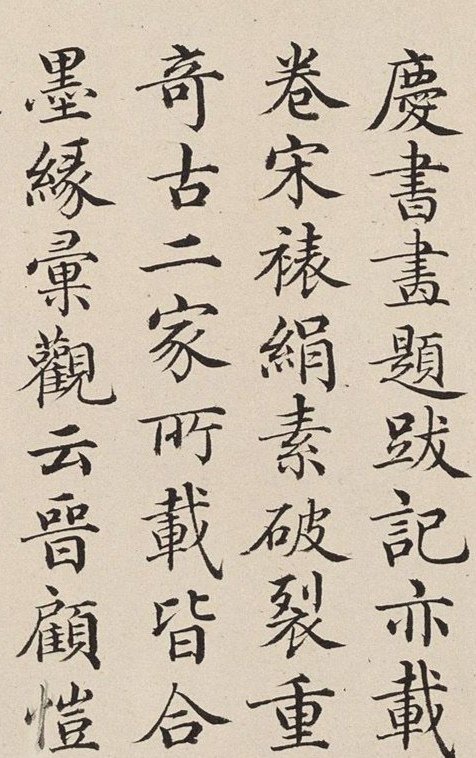 慶書畫題跋記亦載
卷宋裱絹素破裂重
奇古二家所載皆合
墨緣彙觀云晉顧愷